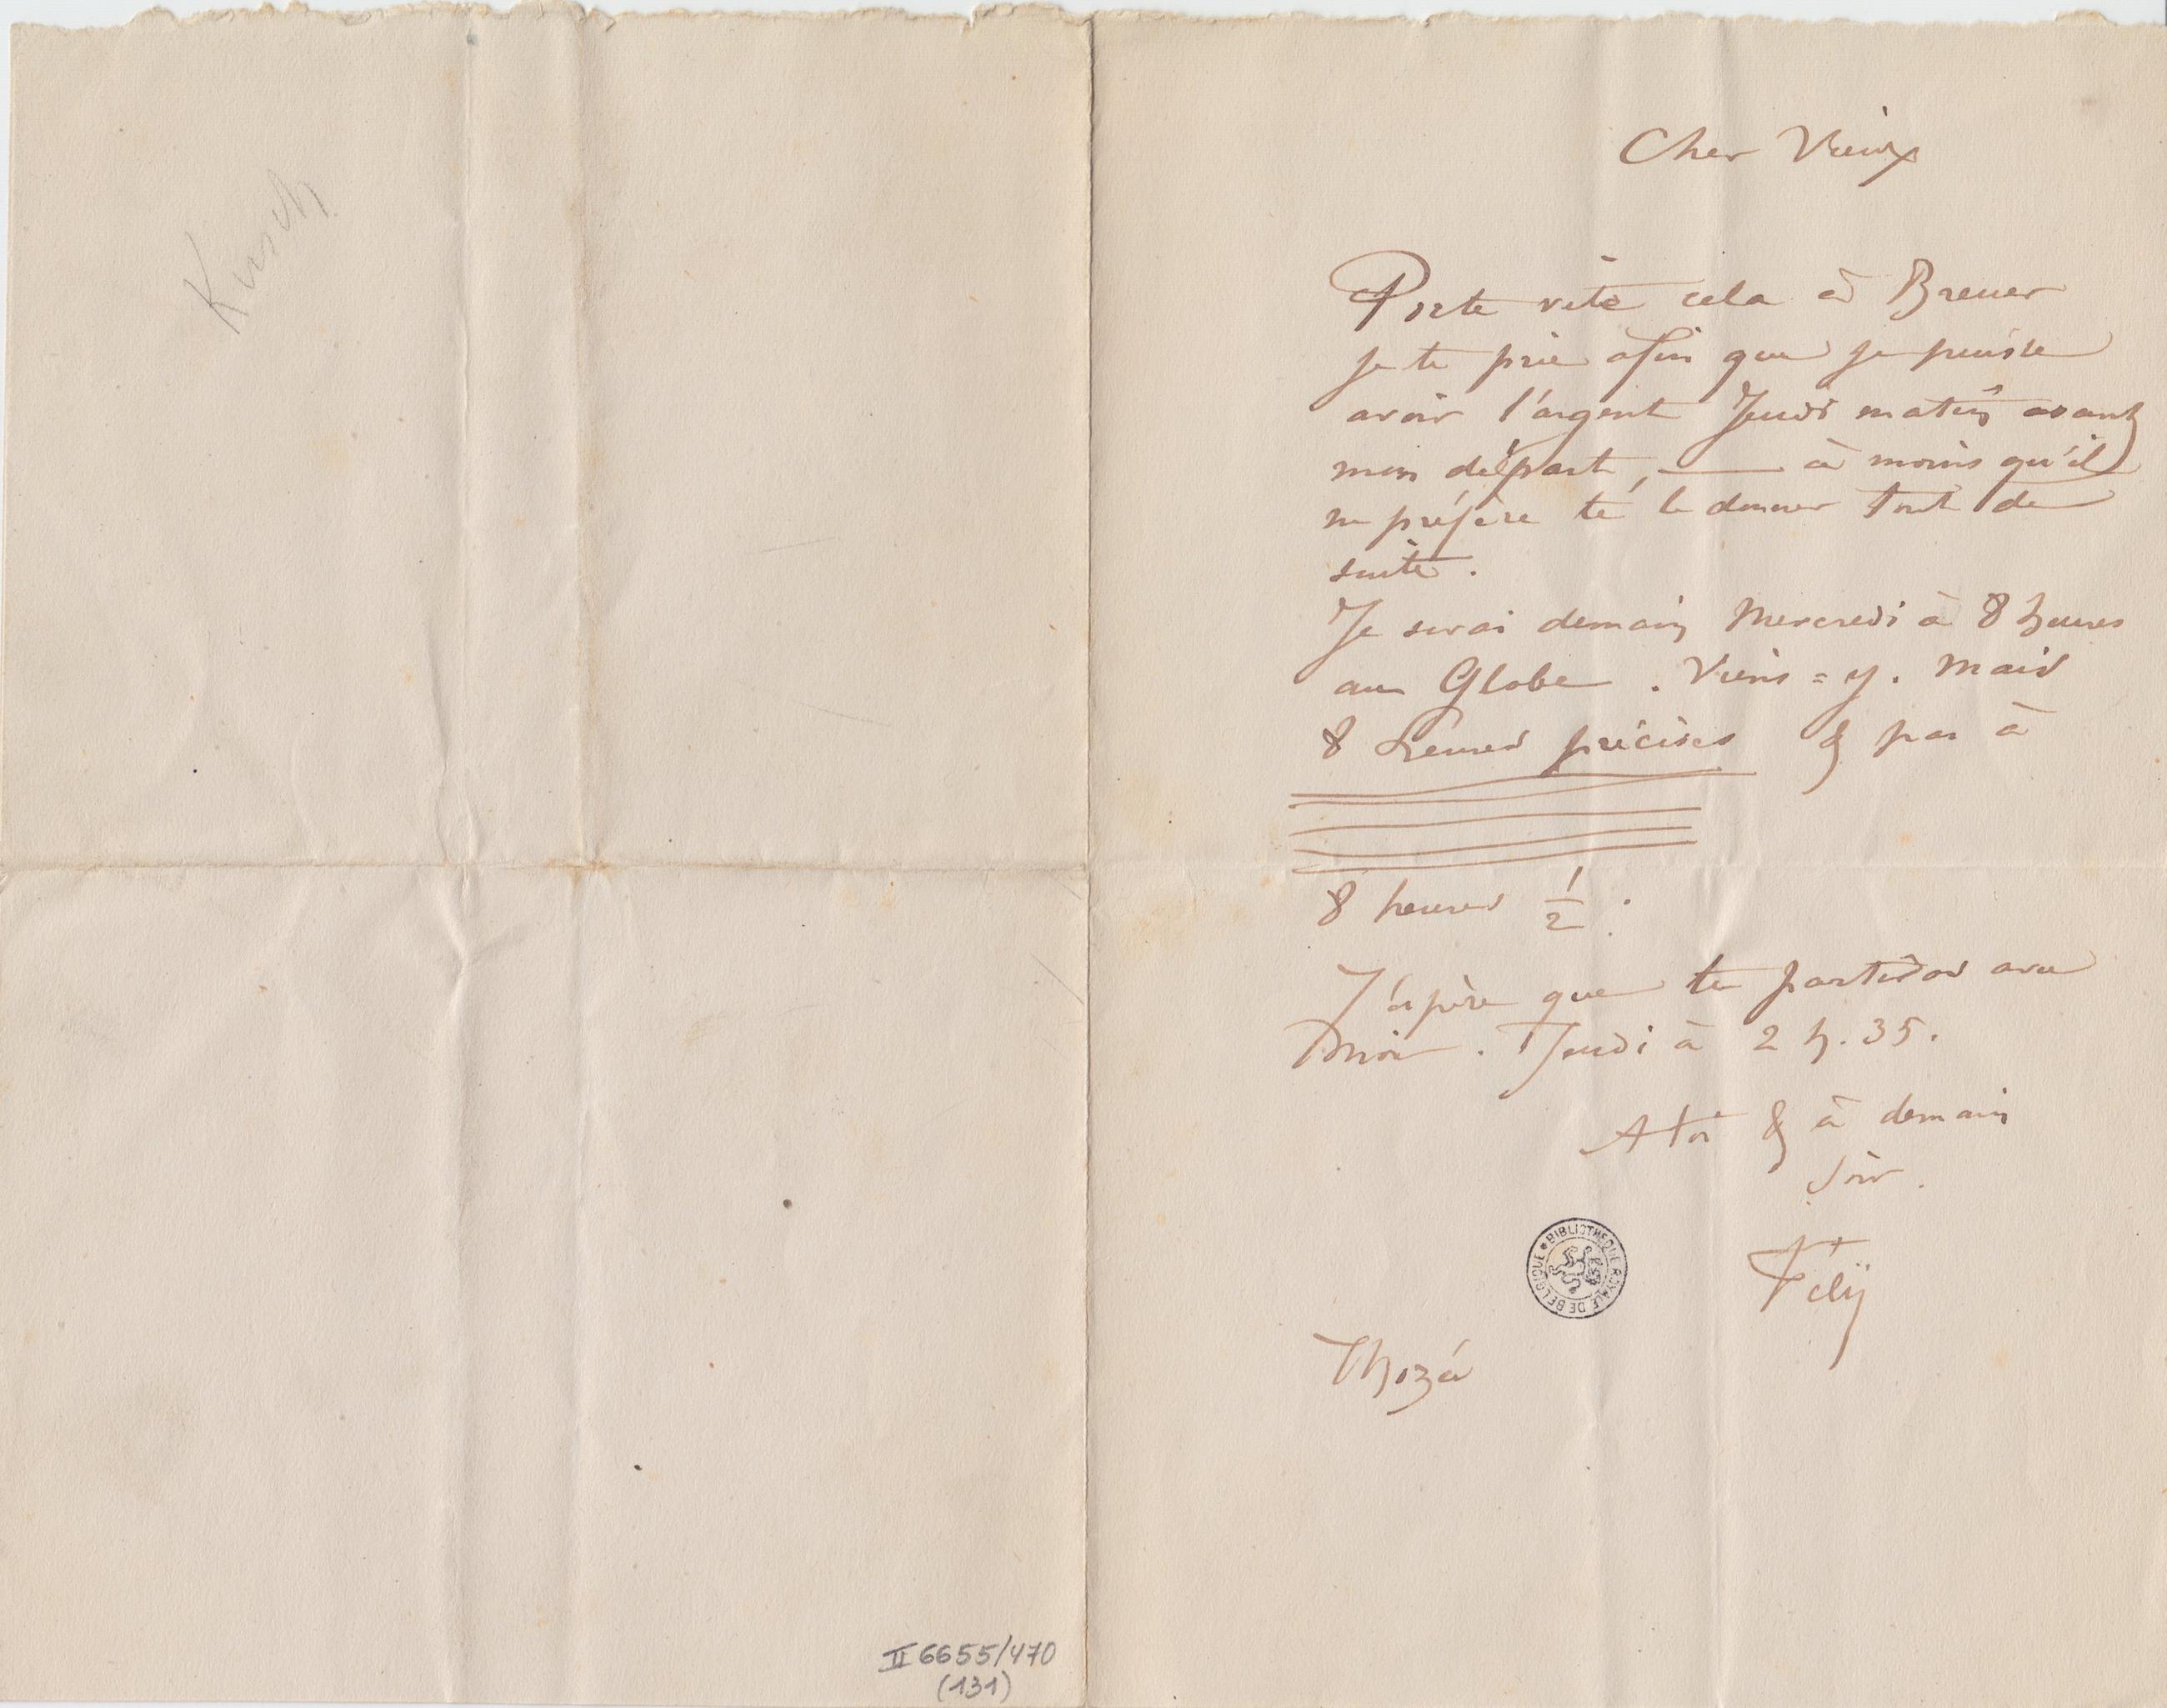 Kirsch
II 6655/470
(131)
Cher Vieux
Porte vite cela à Breuer
je te prie afin que je puisse
avoir l'argent Jeudi matin avant
mon départ, — à moins qu'il
ne préfère te le donner tout de
suite.
Je serai demain Mercredi à 8 heures
au Globe. Viens=y. Mais
8 heures précises & pas à
8 heures 1/2.
J'espère que tu partiras avec
moi. Jeudi à 2 h. 35.
A toi & à demain
soir.
Fély
BIBLIOTHEQUE ROYALE DE BELGIQUE
Thozée